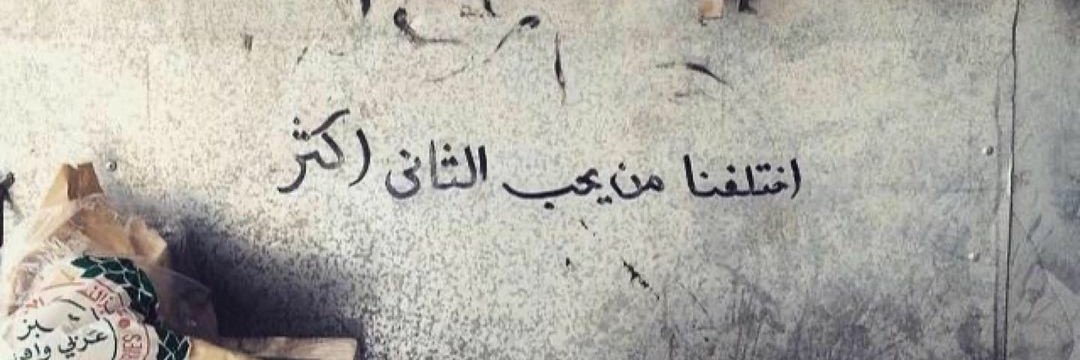 اختلفنا من يحب الثانى اكثر
خبز
عربي